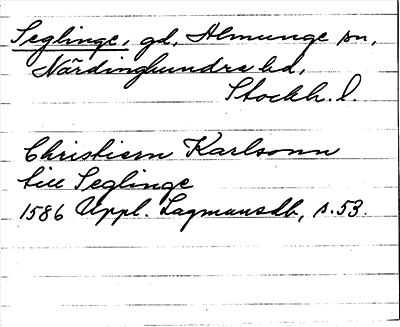 Seglinge, gd, Almunge sn,
Närdinghundra hd,
Stockh. l.
Christiern Karlsonn
till Seglinge
1586 Uppl. Lagmansdb, s. 53.